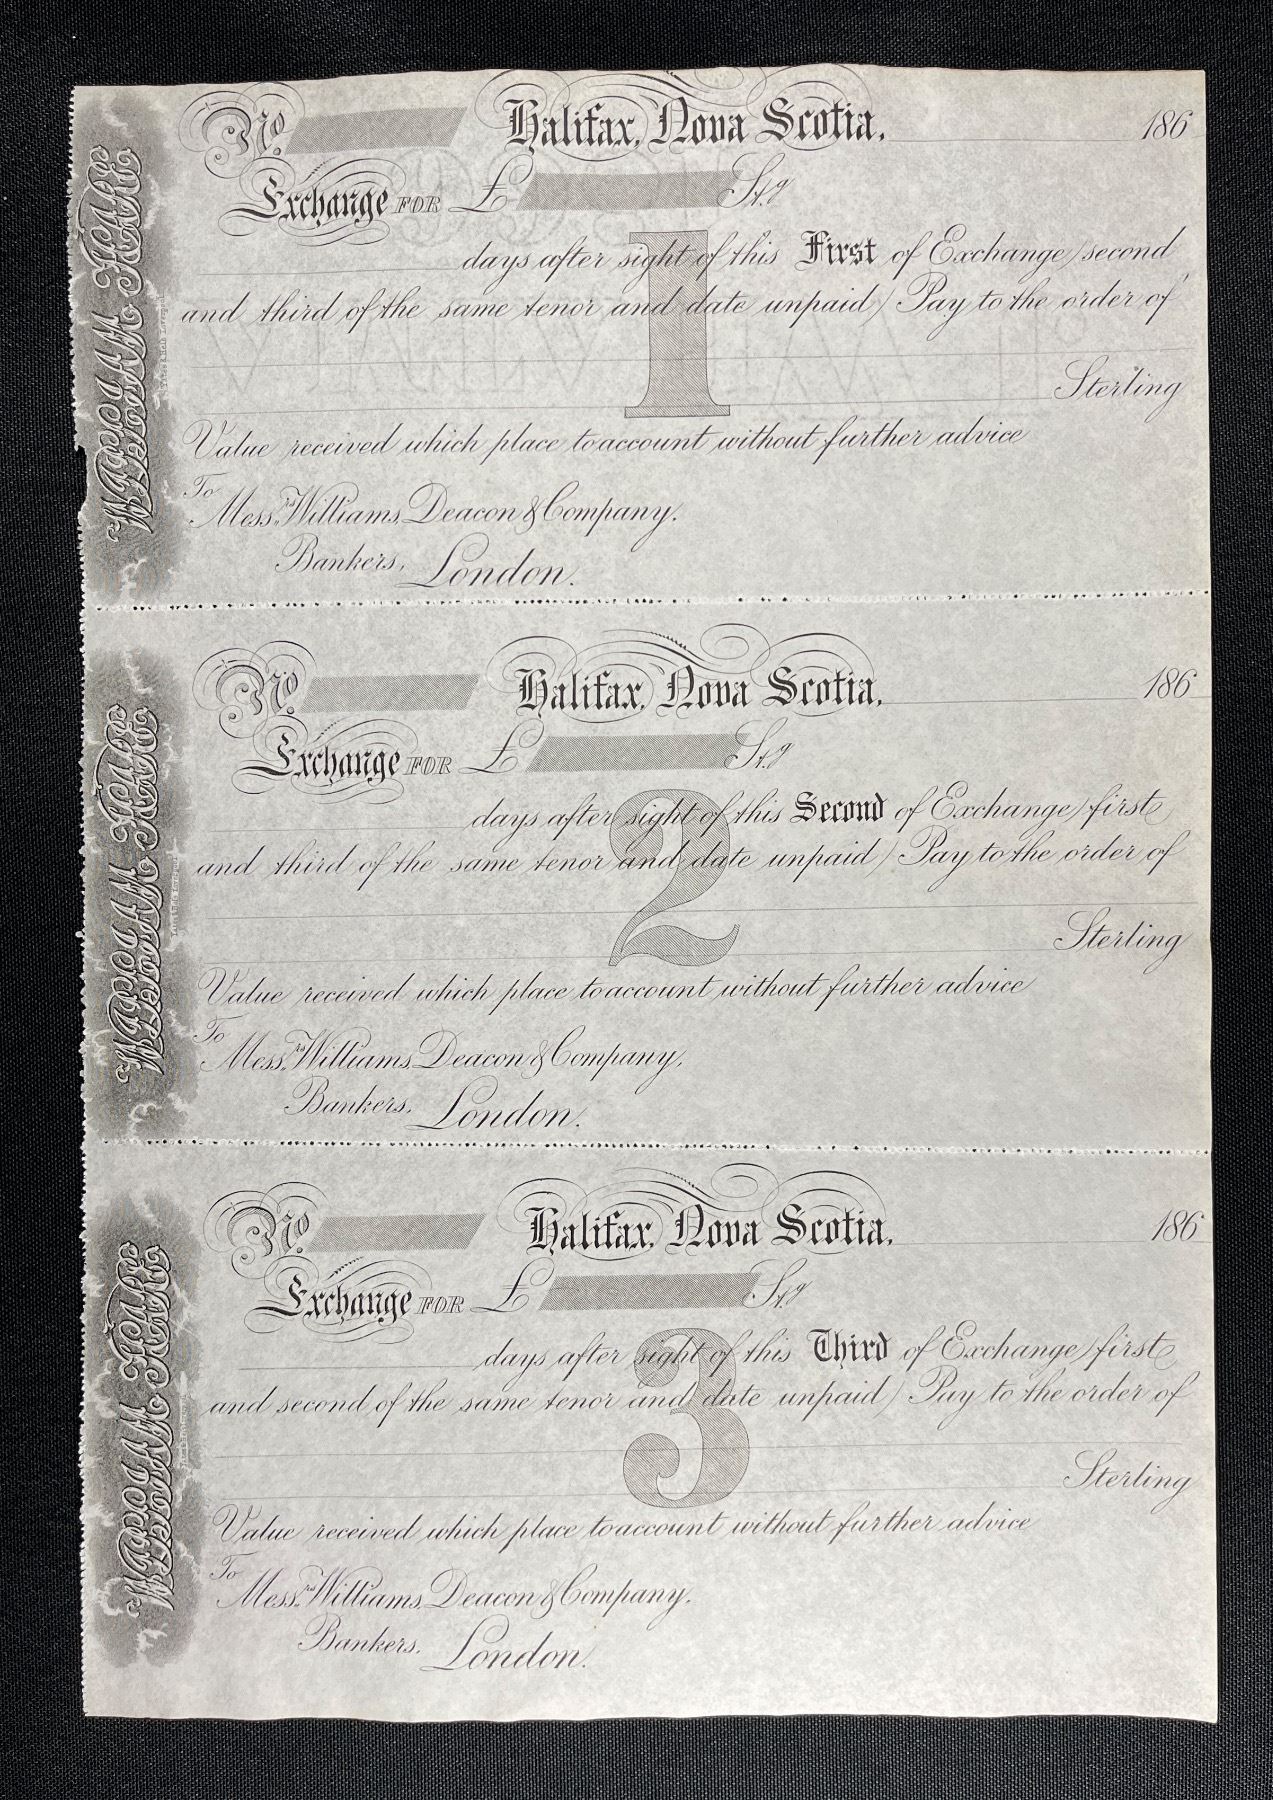 WILLIAM HARE
No. Halifax, Nova Scotia, 186
Exchange FOR £ Stg
1
days after sight of this First of Exchange (second
and third of the same tenor and date unpaid) Pay to the order of
Sterling
Value received which place to account without further advice
To
Mess.rs Williams, Deacon & Company.
Bankers, London.
WILLIAM HARE
No. Halifax, Nova Scotia, 186
Exchange FOR £ Stg
2
days after sight of this Second of Exchange (first
and third of the same tenor and date unpaid) Pay to the order of
Sterling
Value received which place to account without further advice
To
Mess.rs Williams, Deacon & Company,
Bankers, London.
WILLIAM HARE
No. Halifax, Nova Scotia, 186
Exchange FOR £ Stg
3
days after sight of this Third of Exchange (first
and second of the same tenor and date unpaid) Pay to the order of
Sterling
Value received which place to account without further advice
To
Mess.rs Williams, Deacon & Company,
Bankers, London.